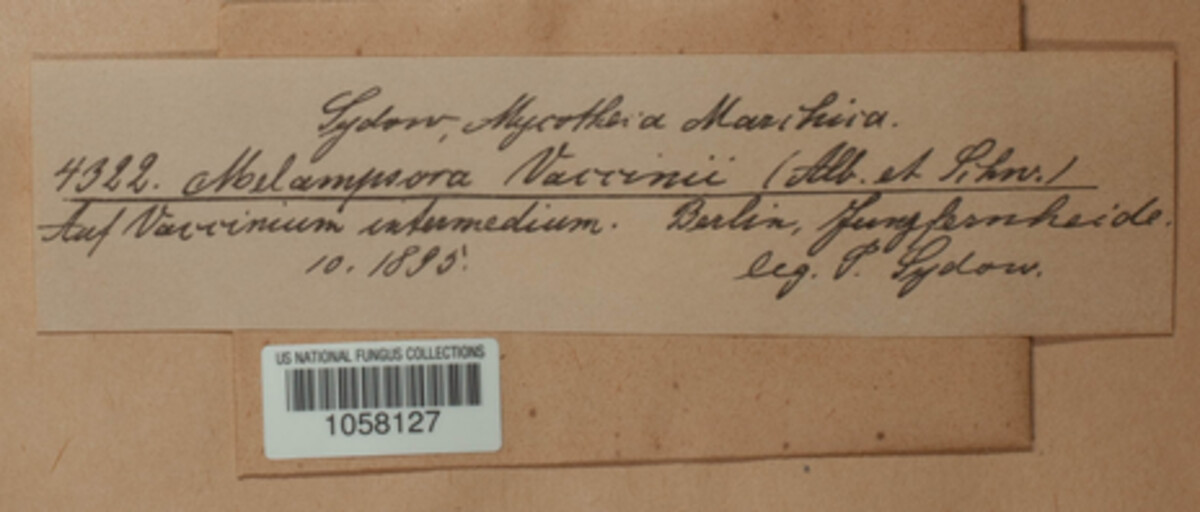 Sydow, Mycotheca Marchica.
4322. Melampsora Vaccinii (Alb. et Schw.)
Auf Vaccinium intermedium. Berlin, Jungfernheide.
10. 1895. leg. P. Sydow.
US NATIONAL FUNGUS COLLECTIONS
1058127